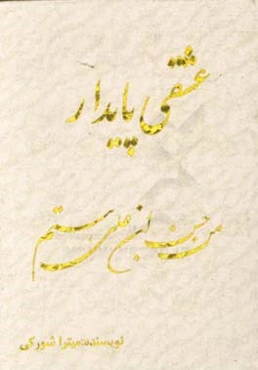 عشقی پایدار
من حسن ابن علی هستم
نویسنده:میترا شورکی